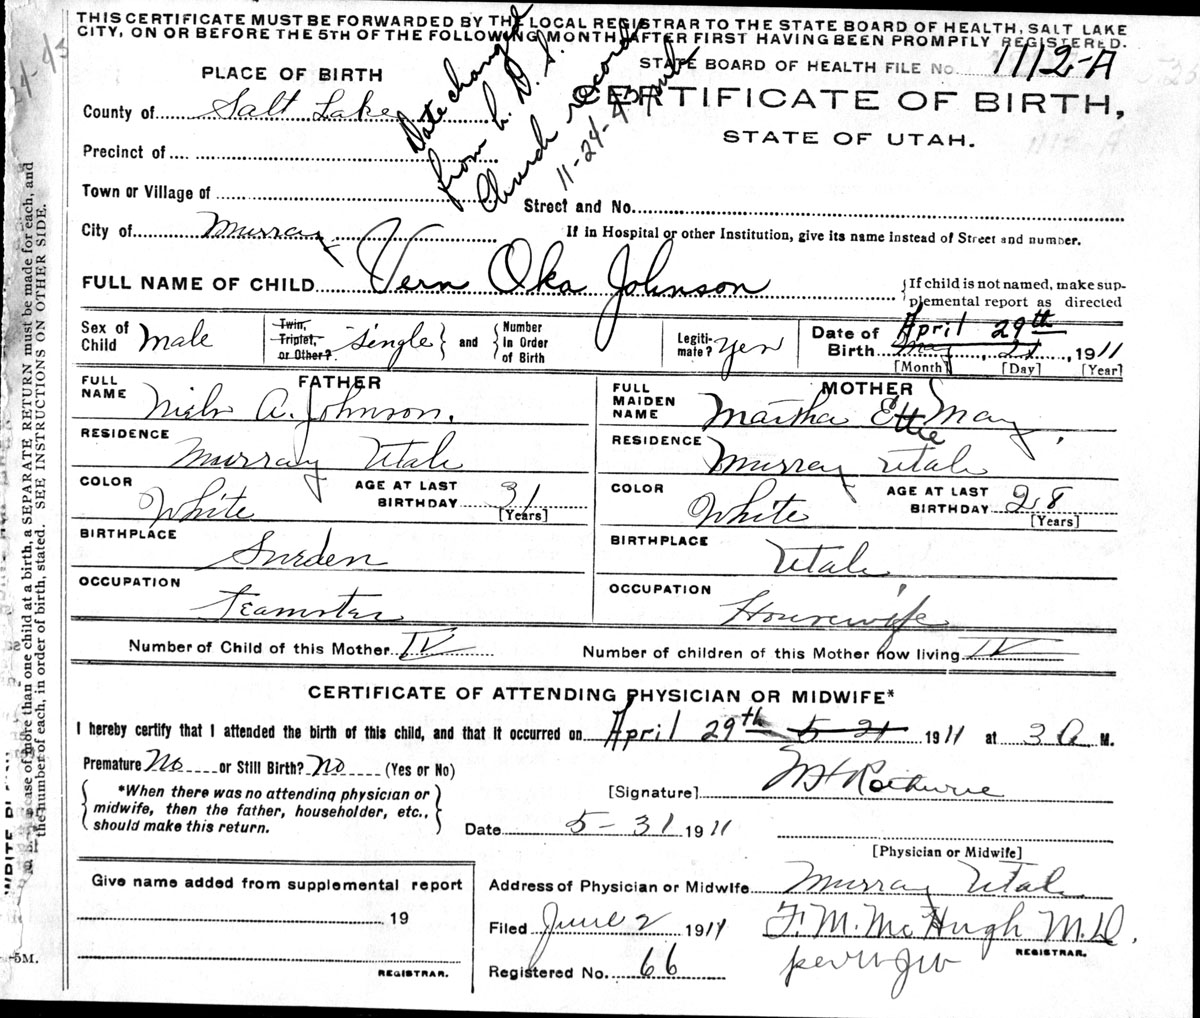 THIS CERTIFICATE MUST BE FORWARDED BY THE LOCAL REGISTRAR TO THE STATE BOARD OF HEALTH, SALT LAKE
CITY, ON OR BEFORE THE 5TH OF THE FOLLOWING MONTH AFTER FIRST HAVING BEEN PROMPTLY REGISTERED.
STATE BOARD OF HEALTH FILE NO. 1112-A
PLACE OF BIRTH
CERTIFICATE OF BIRTH,
STATE OF UTAH.
Date change
from L. D. S.
Church record
11-24-43
County of Salt Lake
Precinct of
Town or Village of
Street and No.
City of Murray
If in Hospital or other Institution, give its name instead of Street and number.
FULL NAME OF CHILD Vern Oka Johnson
{If child is not named, make sup-
plemental report as directed
Sex of Child Male
Twin, Triplet, or Other? Single } and { Number In Order of Birth
Legiti-mate? Yes
Date of Birth April 29th May, 21, 1911
[Month] [Day] [Year]
FATHER
FULL NAME Niels A. Johnson.
RESIDENCE Murray Utah
COLOR White AGE AT LAST BIRTHDAY 31 [Years]
BIRTHPLACE Sweden
OCCUPATION Teamster
MOTHER
FULL MAIDEN NAME Martha Ettie May
RESIDENCE Murray Utah
COLOR White AGE AT LAST BIRTHDAY 28 [Years]
BIRTHPLACE Utah
OCCUPATION Housewife
Number of Child of this Mother IV
Number of children of this Mother now living IV
CERTIFICATE OF ATTENDING PHYSICIAN OR MIDWIFE*
I hereby certify that I attended the birth of this child, and that it occurred on April 29th 5-21 1911 at 3 A M.
Premature No or Still Birth? No (Yes or No)
{*When there was no attending physician or
midwife, then the father, householder, etc.,
should make this return.}
[Signature]
Date 5-31 1911
[Physician or Midwife]
Give name added from supplemental report
19
REGISTRAR.
Address of Physician or Midwife Murray Utah
Filed June 2 1911 F. M. McHugh M.D.
REGISTRAR.
Registered No. 66
case of more than one child at a birth, a SEPARATE RETURN must be made for each, and
the number of each, in order of birth, stated. SEE INSTRUCTIONS ON OTHER SIDE.
5M.